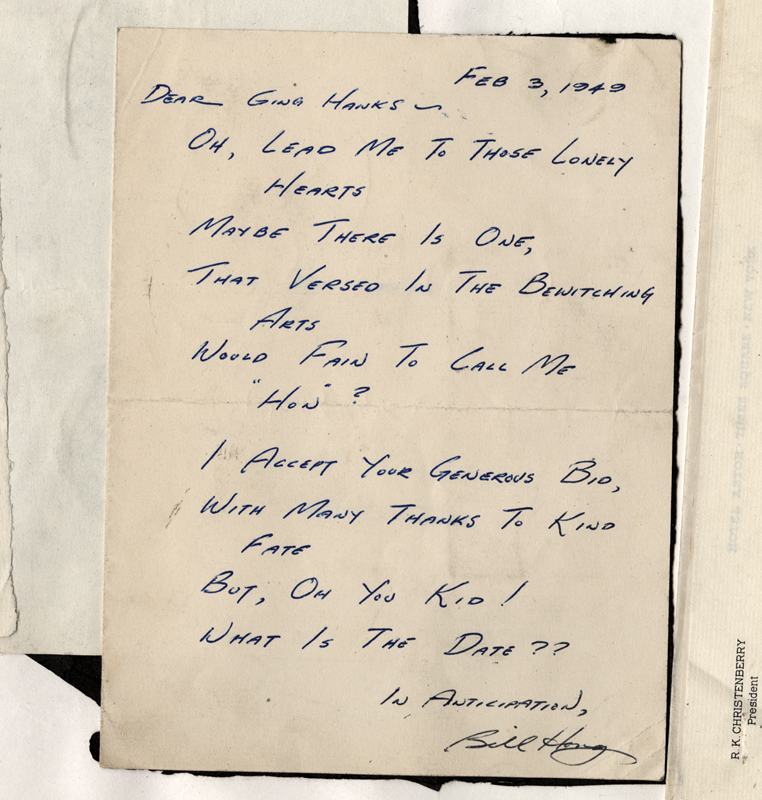 FEB 3, 1949
DEAR GING HANKS ~
OH, LEAD ME TO THOSE LONELY
HEARTS
MAYBE THERE IS ONE,
THAT VERSED IN THE BEWITCHING
ARTS
WOULD FAIN TO CALL ME
"HON" ?
I ACCEPT YOUR GENEROUS BID,
WITH MANY THANKS TO KIND
FATE
BUT, OH YOU KID !
WHAT IS THE DATE ??
IN ANTICIPATION,
Bill
R. K. CHRISTENBERRY
President